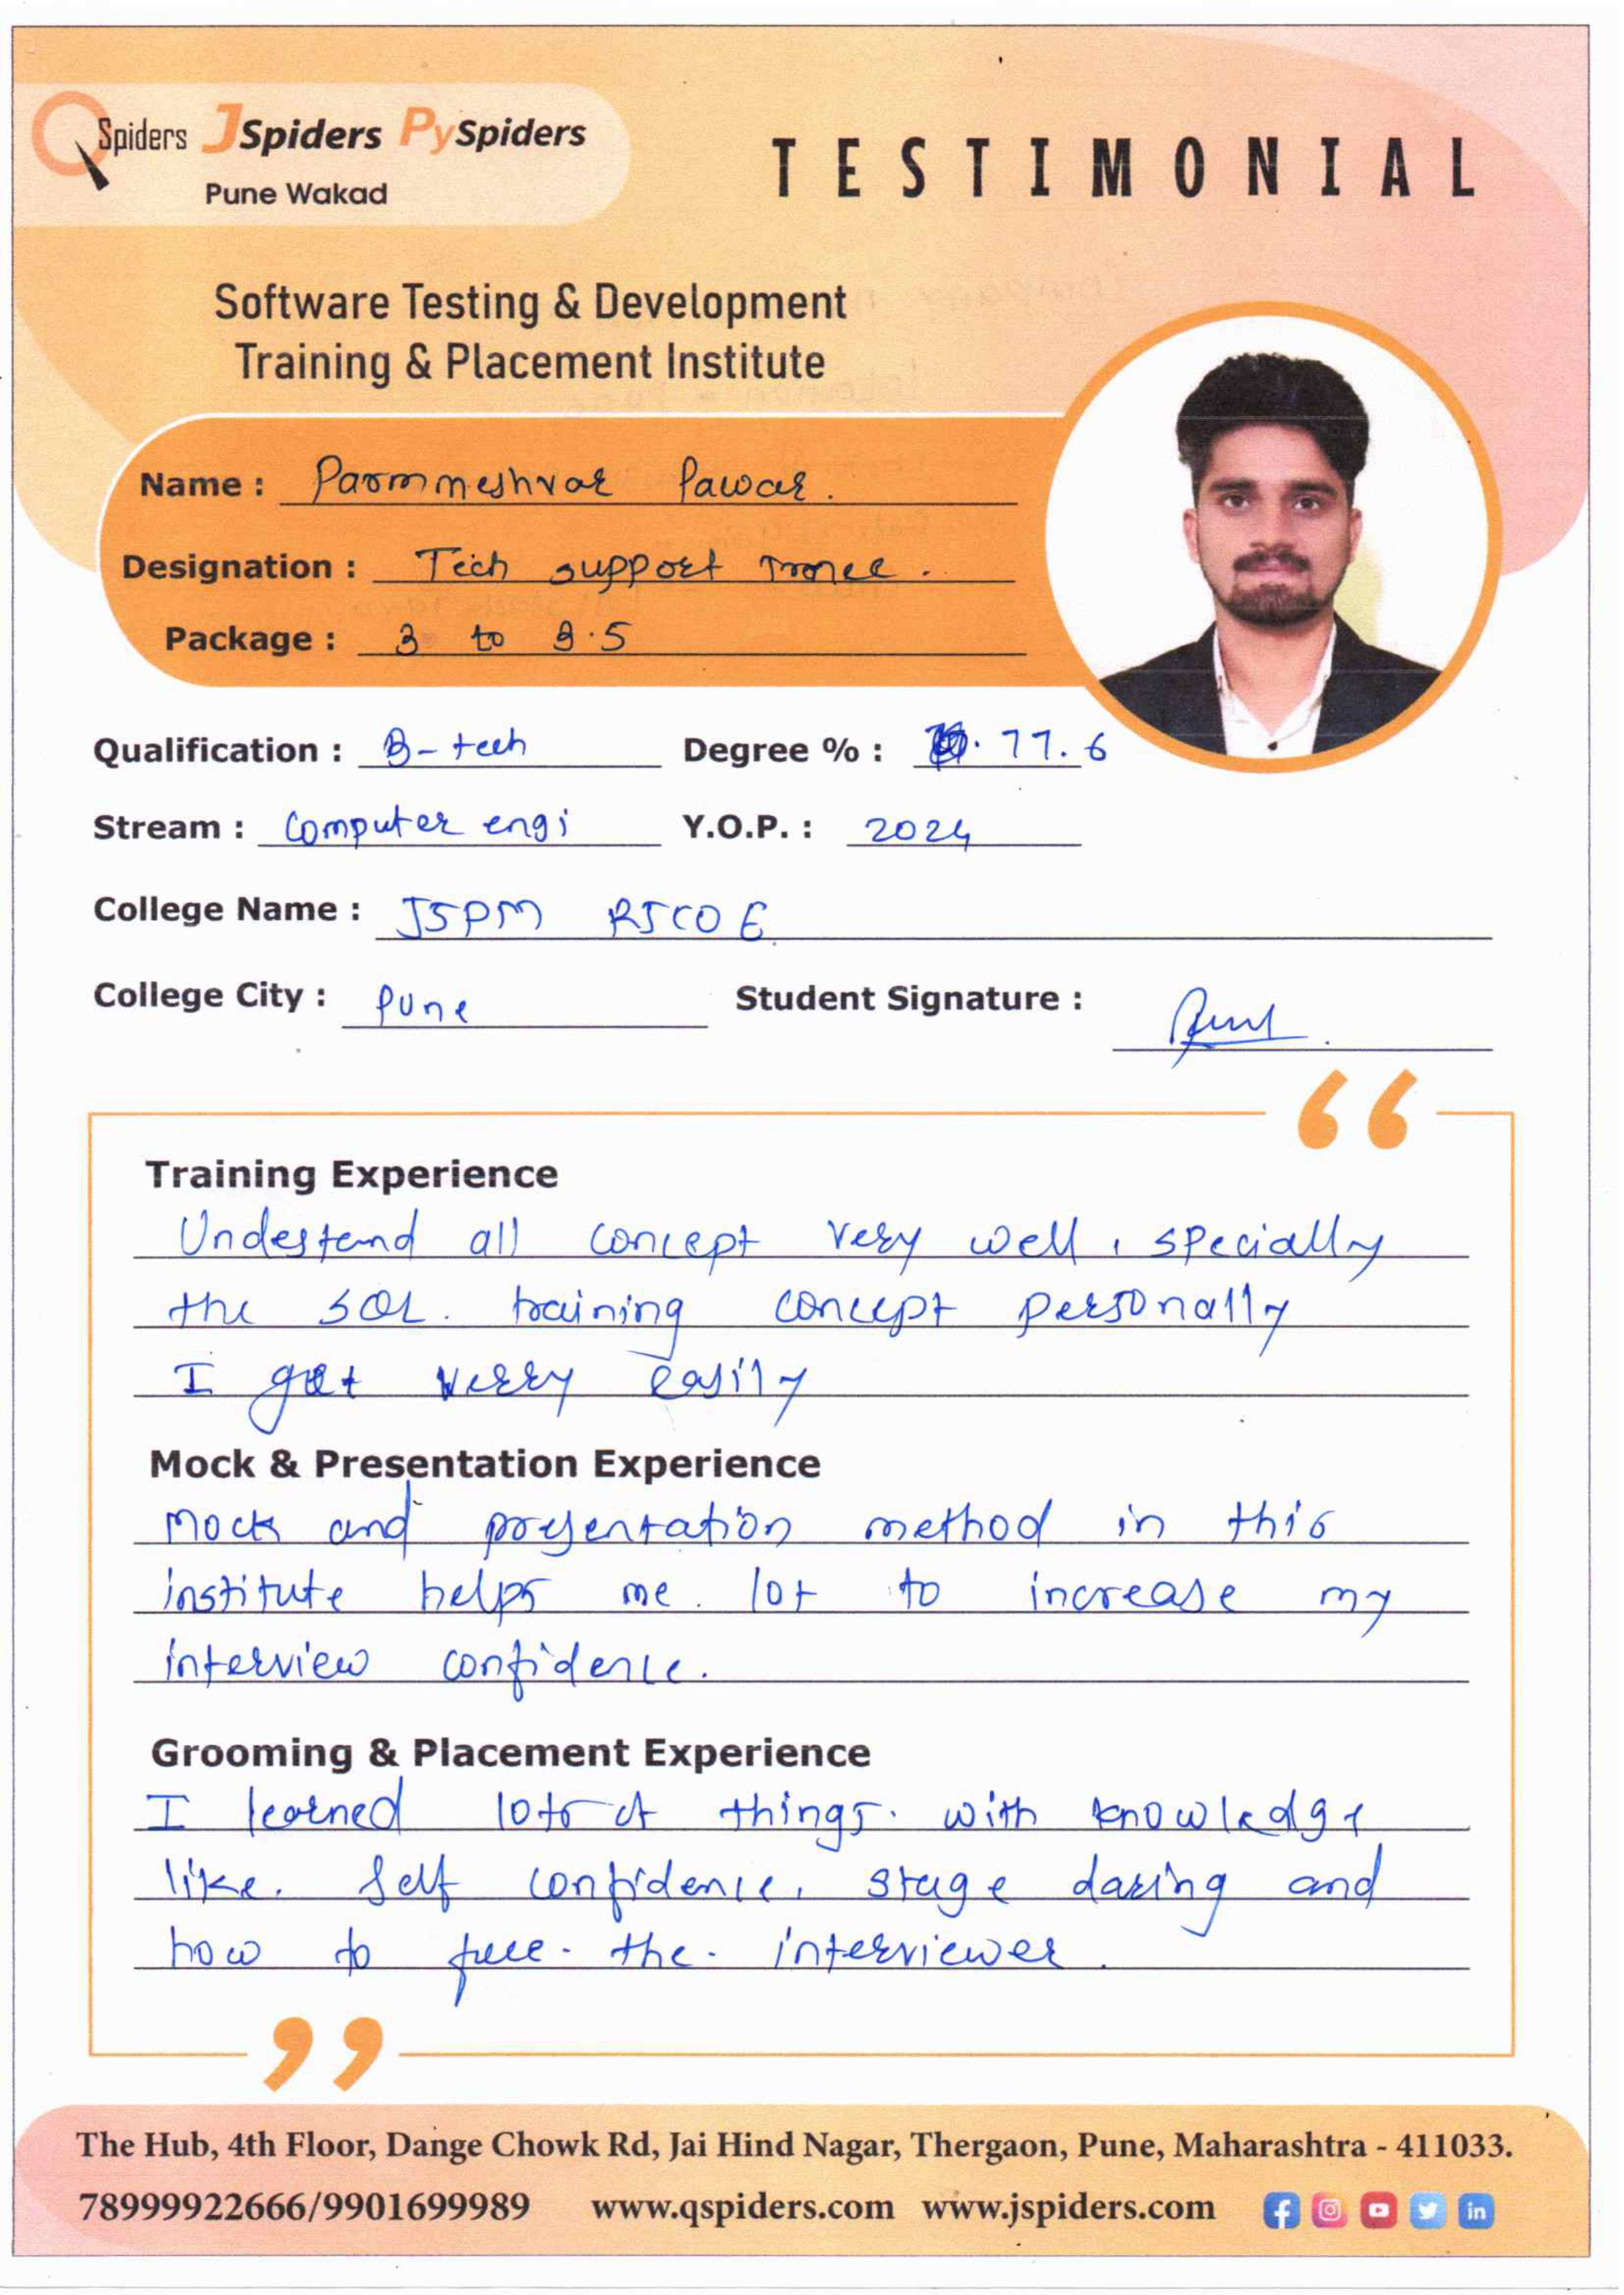 QSpiders JSpiders PySpiders
Pune Wakad
TESTIMONIAL
Software Testing & Development
Training & Placement Institute
Name : Parmmeshvar Pawar.
Designation : Tech support Tranee.
Package : 3 to 3.5
Qualification : B-tech Degree % : 77.6
Stream : Computer engi Y.O.P. : 2024
College Name : JSPM RSCOE
College City : Pune Student Signature :
Training Experience
Undestand all concept very well, specially
the SQL. training concept personally
I get verry easily
Mock & Presentation Experience
Mock and presentation method in this
institute helps me. lot to increase my
interview confidence.
Grooming & Placement Experience
I learned lots of things. with knowledge
like. Self confidence, stage daring and
how to face. the. interviewer.
The Hub, 4th Floor, Dange Chowk Rd, Jai Hind Nagar, Thergaon, Pune, Maharashtra - 411033.
78999922666/9901699989 www.qspiders.com www.jspiders.com